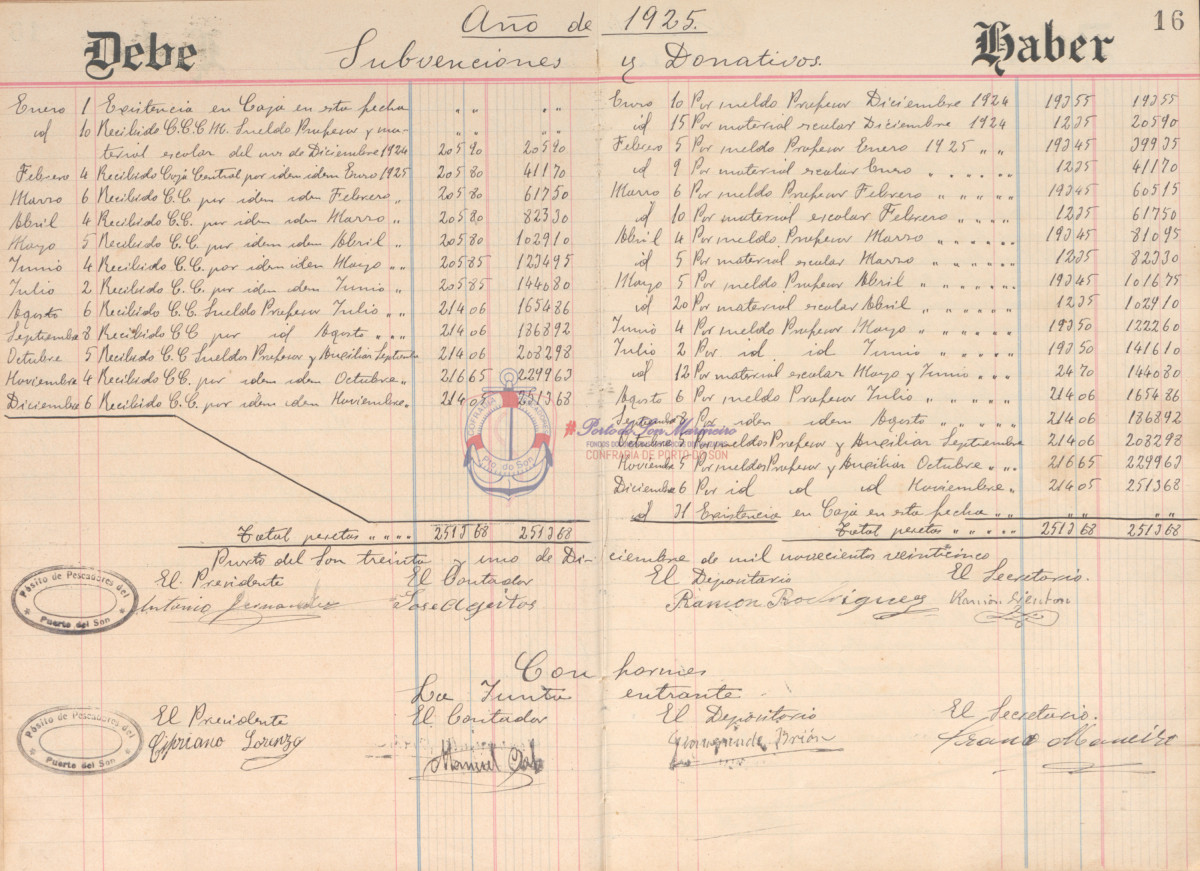 Año de 1925.
16
Debe
Haber
Subvenciones y Donativos.
Enero 1 Existencia en Caja en esta fecha " " " "
id 10 Recibido C.C.C.M. Sueldo Profesor y ma- " " " "
terial escolar del mes de Diciembre 1924 205 90 205 90
Febrero 4 Recibido Caja Central por idem idem Enero 1925 205 80 411 70
Marzo 6 Recibido C.C. por idem idem Febrero " 205 80 617 50
Abril 4 Recibido C.C. por idem idem Marzo " 205 80 823 30
Mayo 5 Recibido C.C. por idem idem Abril " 205 80 1029 10
Junio 4 Recibido C.C. por idem idem Mayo " " 205 85 1234 95
Julio 2 Recibido C.C. por idem idem Junio " 205 85 1440 80
Agosto 6 Recibido C.C. Sueldo Profesor Julio " " 214 06 1654 86
Septiembre 8 Recibido C.C por id Agosto " " " 214 06 1868 92
Octubre 5 Recibido C.C Sueldos Profesor y Auxiliar Septiembre 214 06 2082 98
Noviembre 4 Recibido C.C. por idem idem Octubre " 216 65 2299 63
Diciembre 6 Recibido C.C. por idem idem Noviembre " 214 05 2513 68
Total pesetas " " " " 2513 68 2513 68
Enero 10 Por sueldo Profesor Diciembre 1924 193 55 193 55
id 15 Por material escolar Diciembre 1924 12 35 205 90
Febrero 5 Por sueldo Profesor Enero 1925 " " 193 45 399 35
id 9 Por material escolar Enero " " " " " 12 35 411 70
Marzo 6 Por sueldo Profesor Febrero " " " " 193 45 605 15
id 10 Por material escolar Febrero " " " " 12 35 617 50
Abril 4 Por sueldo Profesor Marzo " " " " " 193 45 810 95
id 5 Por material escolar Marzo " " " " " 12 35 823 30
Mayo 5 Por sueldo Profesor Abril " " " " " 193 45 1016 75
id 20 Por material escolar Abril " " " " " 12 35 1029 10
Junio 4 Por sueldo Profesor Mayo " " " " " 193 50 1222 60
Julio 2 Por id id Junio " " " " 193 50 1416 10
id 12 Por material escolar Mayo y Junio " " " 24 70 1440 80
Agosto 6 Por sueldo Profesor Julio " " " " 214 06 1654 86
Septiembre 8 Por idem idem Agosto " " " " 214 06 1868 92
Octubre 5 Por sueldos Profesor y Auxiliar Septiembre 214 06 2082 98
Noviembre 5 Por sueldos Profesor y Auxiliar Octubre " " " 216 65 2299 63
Diciembre 6 Por id id id Noviembre " 214 05 2513 68
id 31 Existencia en Caja en esta fecha " " " " " "
Total pesetas " " " " " 2513 68 2513 68
COFRADÍA
Pto. do Son
# Porto do Son Mariñeiro
CONFRARÍA DE PORTO DO SON
Puerto del Son treinta y uno de Diciembre de mil novecientos veinticinco
El Presidente El Contador El Depositario El Secretario.
Antonio Fernandez Jose Ageitos Ramon Rodriguez Ramón
Pósito de Pescadores del
Puerto del Son
Conformes
La Junta entrante.
El Presidente El Contador El Depositario El Secretario.
Cipriano Lorenzo Manuel Brión Maneiro
Pósito de Pescadores del
Puerto del Son